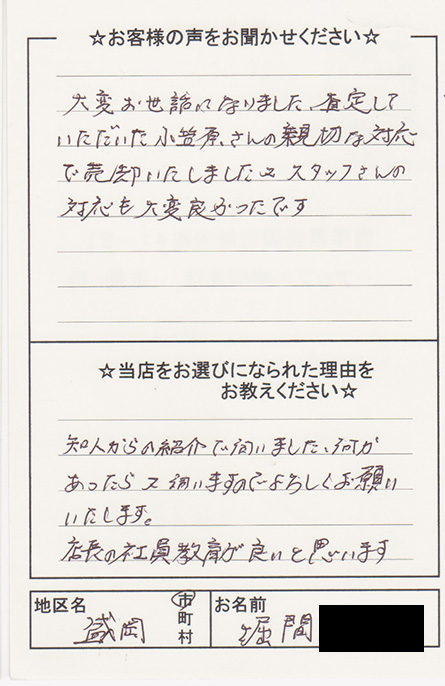 ☆お客様の声をお聞かせください☆
大変お世話になりました、査定して
いただいた小笠原、さんの親切な対応
で売却いたしました又スタッフさんの
対応も大変良かったです
☆当店をお選びになられた理由を
お教えください☆
知人からの紹介で伺いました、何か
あったら又伺いますのでよろしくお願い
いたします。
店長の社員教育が良いと思います
地区名 盛岡 市町村 お名前 堀間